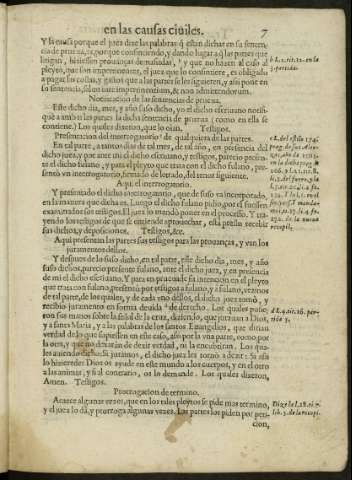 en las causas ciuiles. 7
Y la causa porque el juez dize las palabras q̃ estan dichas en su senten-
cia de prueua, es, porque consintiendo, y dando lugar a q̃ las partes que
litigan, hiziessen prouanças demasiadas, y que no hazen al caso al
pleyto, que son impertinentes, el juez que lo consintiere, es obligado
a pagar las costas, y gastos que a las partes se les siguieren, y assi pone en
la sentencia, saluo iure impertinentium, & non admittendorum.
Notificacion de las sentencias de prueua.
Este dicho dia, mes, y año suso dicho, yo el dicho escriuano notifi-
què a ambas las partes la dicha sentencia de prueua (como en ella se
contiene.) Los quales dixeron, que lo oian. Testigos.
Presentacion del interrogatorio de qualquiera de las partes.
En tal parte, a tantos dias de tal mes, de tal año, en presencia del
dicho juez, y por ante mi el dicho escriuano, y testigos, parecio presen-
te el dicho fulano, y para el pleyto que trata con el dicho fulano, pre-
sentò vn interrogatorio, firmado de letrado, del tenor siguiente.
Aqui el interrogatorio.
Y presentado el dicho interrogatorio, que de suso va incorporado,
en la manera que dicha es. Luego el dicho fulano pidio, por el fuessen
examinados sus testigos. El juez lo mandò poner en el processo. Y tra-
yendo los testigos de que se entiende aprouechar, està presto recebir
sus dichos, y deposiciones. Testigos, &c.
Aqui presentan las partes sus testigos para las prouanças, y van los
juramentos dellos.
Y despues de lo suso dicho, en tal parte, este dicho dia, mes, y año
suso dichos, parecio presente fulano, ante el dicho juez, y en presencia
de mi el dicho escriuano. Y para en prueua de su intencion en el pleyto
que trata con fulano, presentò por testigos a fulano, y a fulano, vezinos
de tal parte, de los quales, y de cada vno dellos, el dicho juez tomò, y
recibio juramento en forma deuida de derecho. Los quales pusie-
ron sus manos sobre la señal de la cruz, diziendo, que jurauan a Dios,
y a santa Maria, y a las palabras de los santos Euangelios, que dirian
verdad de lo que supiessen en este caso, assi por la vna parte, como por
la otra, y que no dexaràn de dezir verdad, ni la encubriràn. Los qua-
les auiendo dicho, Si juramos, el dicho juez les tornò a dezir: Si assi
lo hizieredes Dios os ayude en este mundo a los cuerpos, y en el otro
a las animas, y si al contrario, os lo demande. Los quales dixeron,
Amen. Testigos.
Prorrogacion de termino.
Acaece algunas vezes, que en los tales pleytos se pide mas termino,
y el juez lo dà, y prorroga algunas vezes. Las partes los piden por peti-
cion,